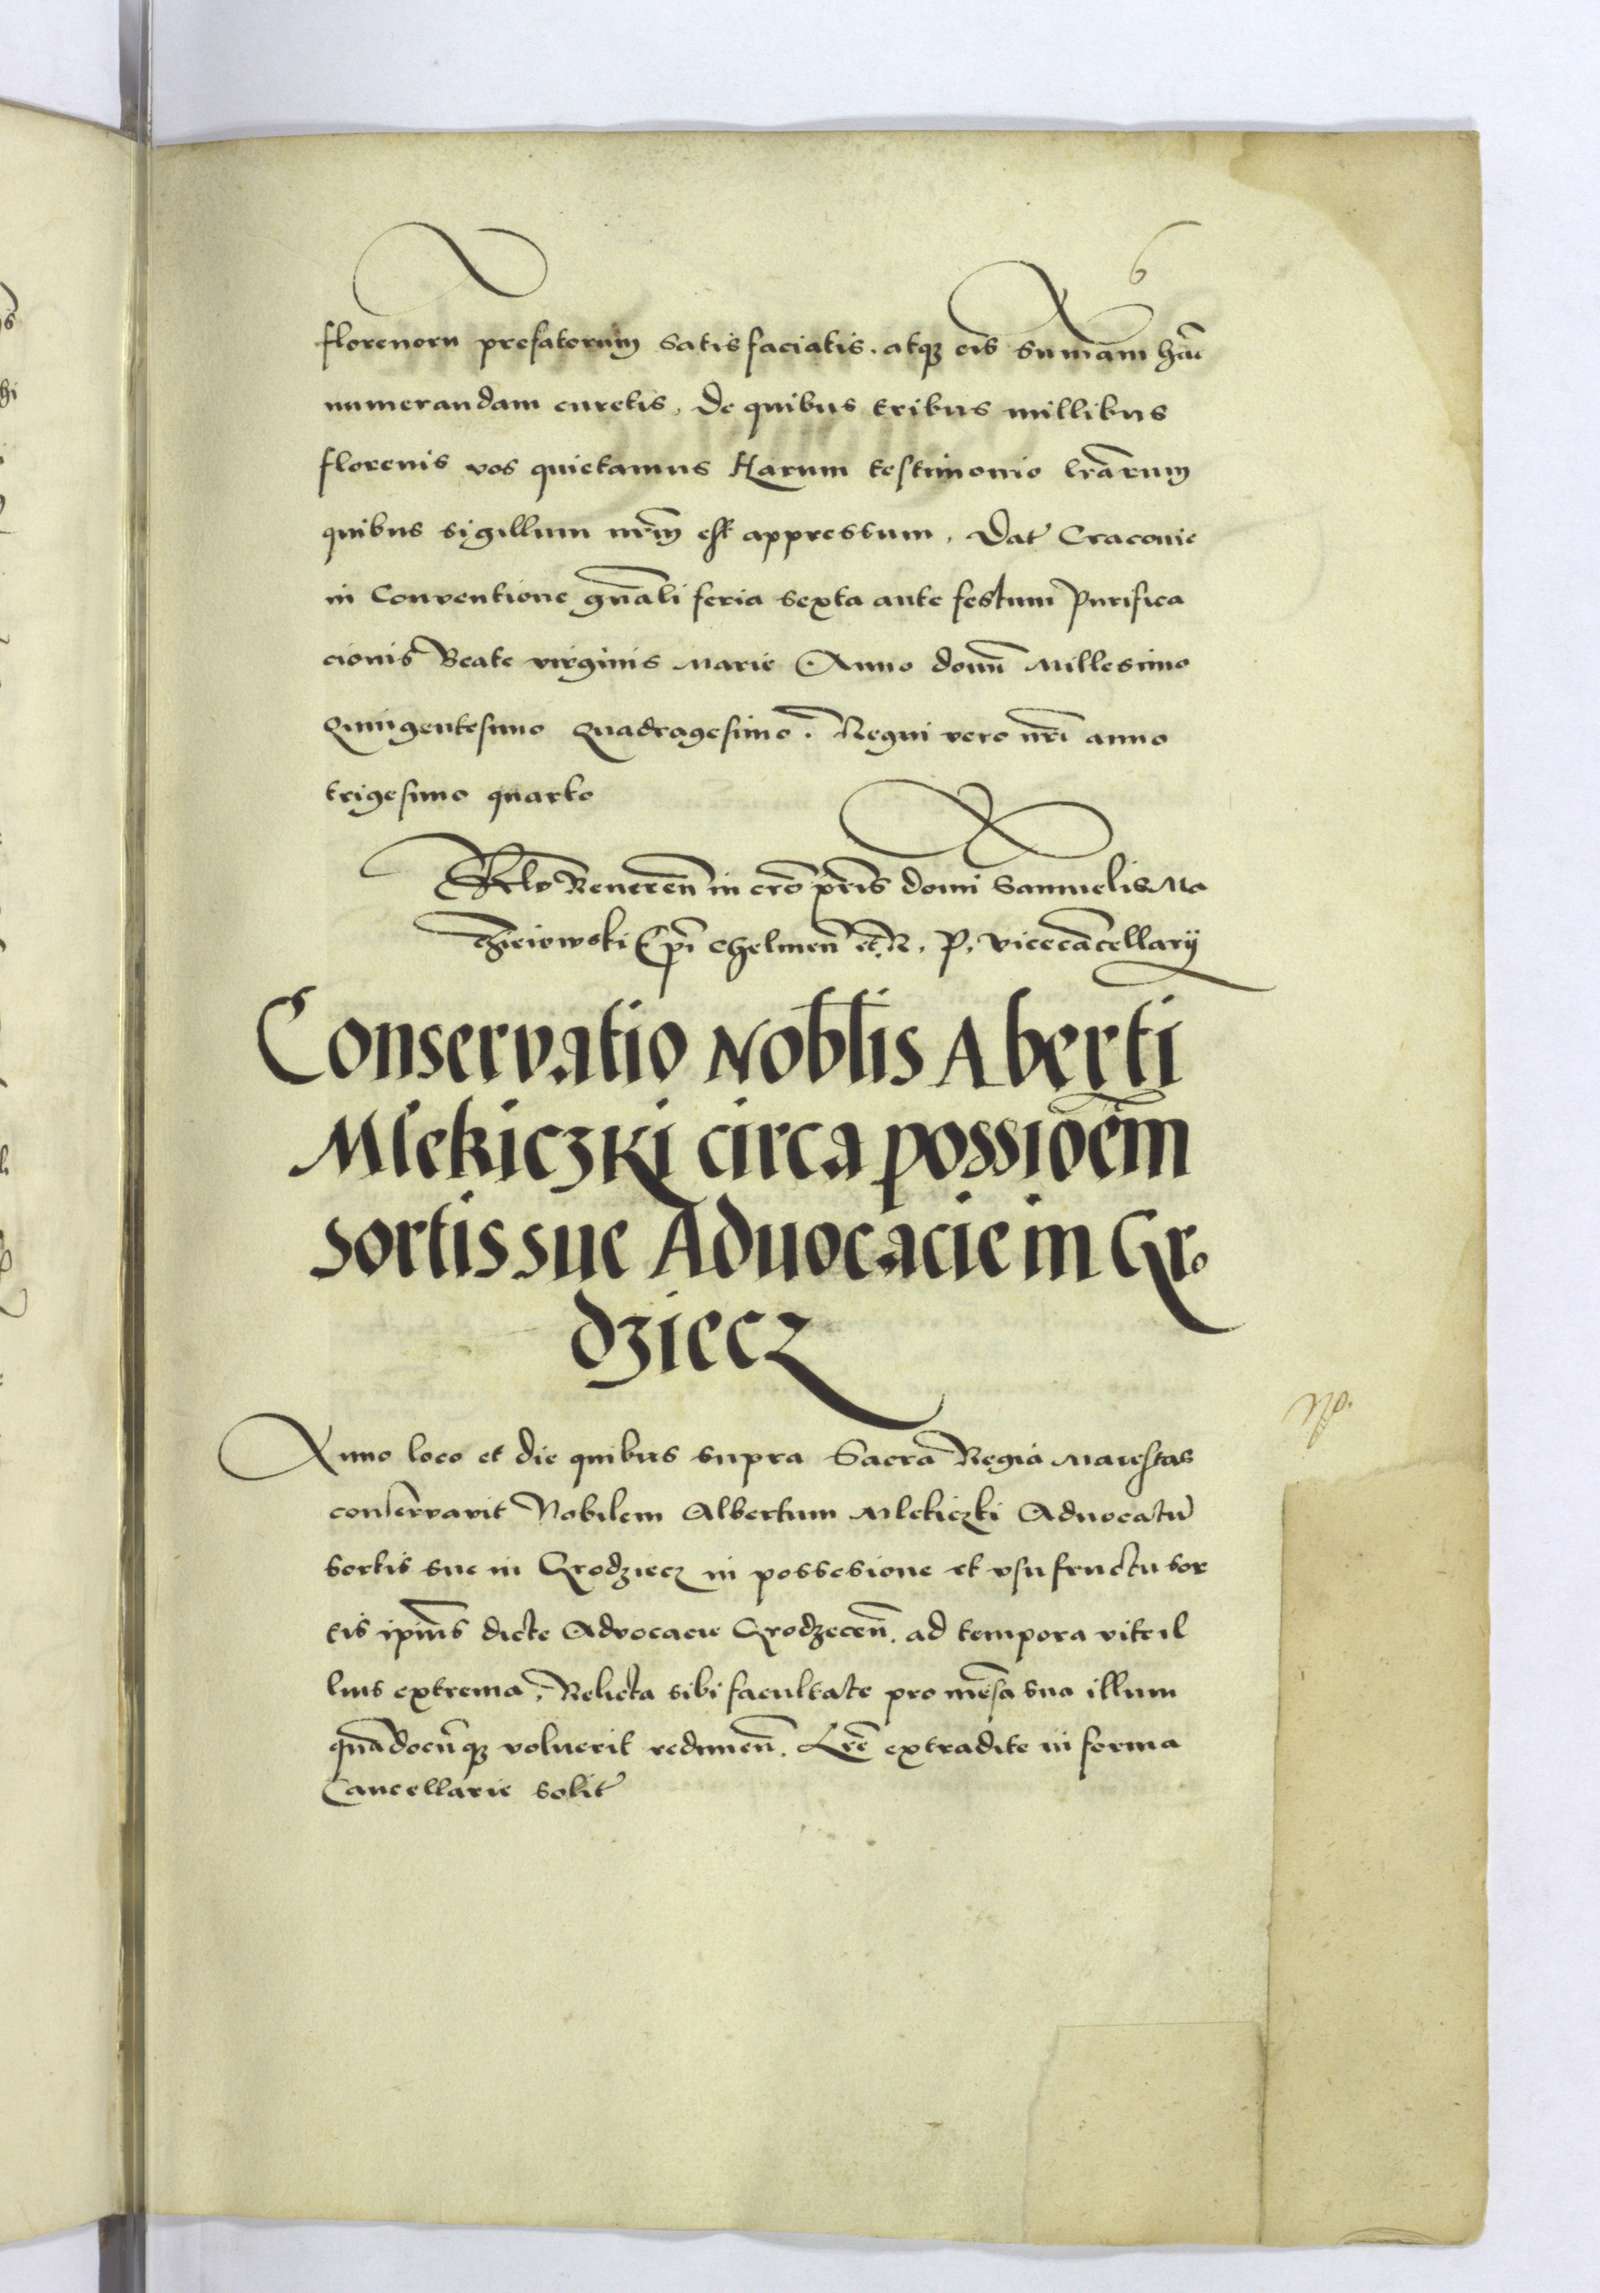 6
florenoru prefatorum satisfaciatis. atqꝫ eis sumam hãc
numerandam curetis, de quibus tribus millibus
florenis vos quietamus Harum testimonio lrãrum
quibus sigillum nrm̃ est appressum, Dat̃ Cracovie
in Conventione gñali feria sexta ante festum Purifica
cionis Beate virginis Marie Anno domĩ Millesimo
Quingentesimo Quadragesimo. Regni vero nrĩ anno
trigesimo quarto
Rlo Reveren̄ in cro p̄ris domi Samuelis Ma
czieiowski Ep̄i Chelmen̄ et R. P. vicecãcellarij
Conservatio Nobl̄is Aberti
Mlekiczki circa possiōēm
sortis sue Aduocacie in Gro
dziecz
No.
Anno loco et die quibus supra Sacra Regia Maiestas
conservavit Nobilem Albertum Mlekiczki Aduocatũ
sortis sue in Grodziecz in possesione et vsufructu sor
tis ip̄ius dicte Advocacie Grodzecen̄. ad tempora vite il
lius extrema, Relicta sibi facultate pro mẽsa sua illum
quãdocũqꝫ voluerit redimen̄. Lrẽ extradite in forma
Cancellarie solit̃